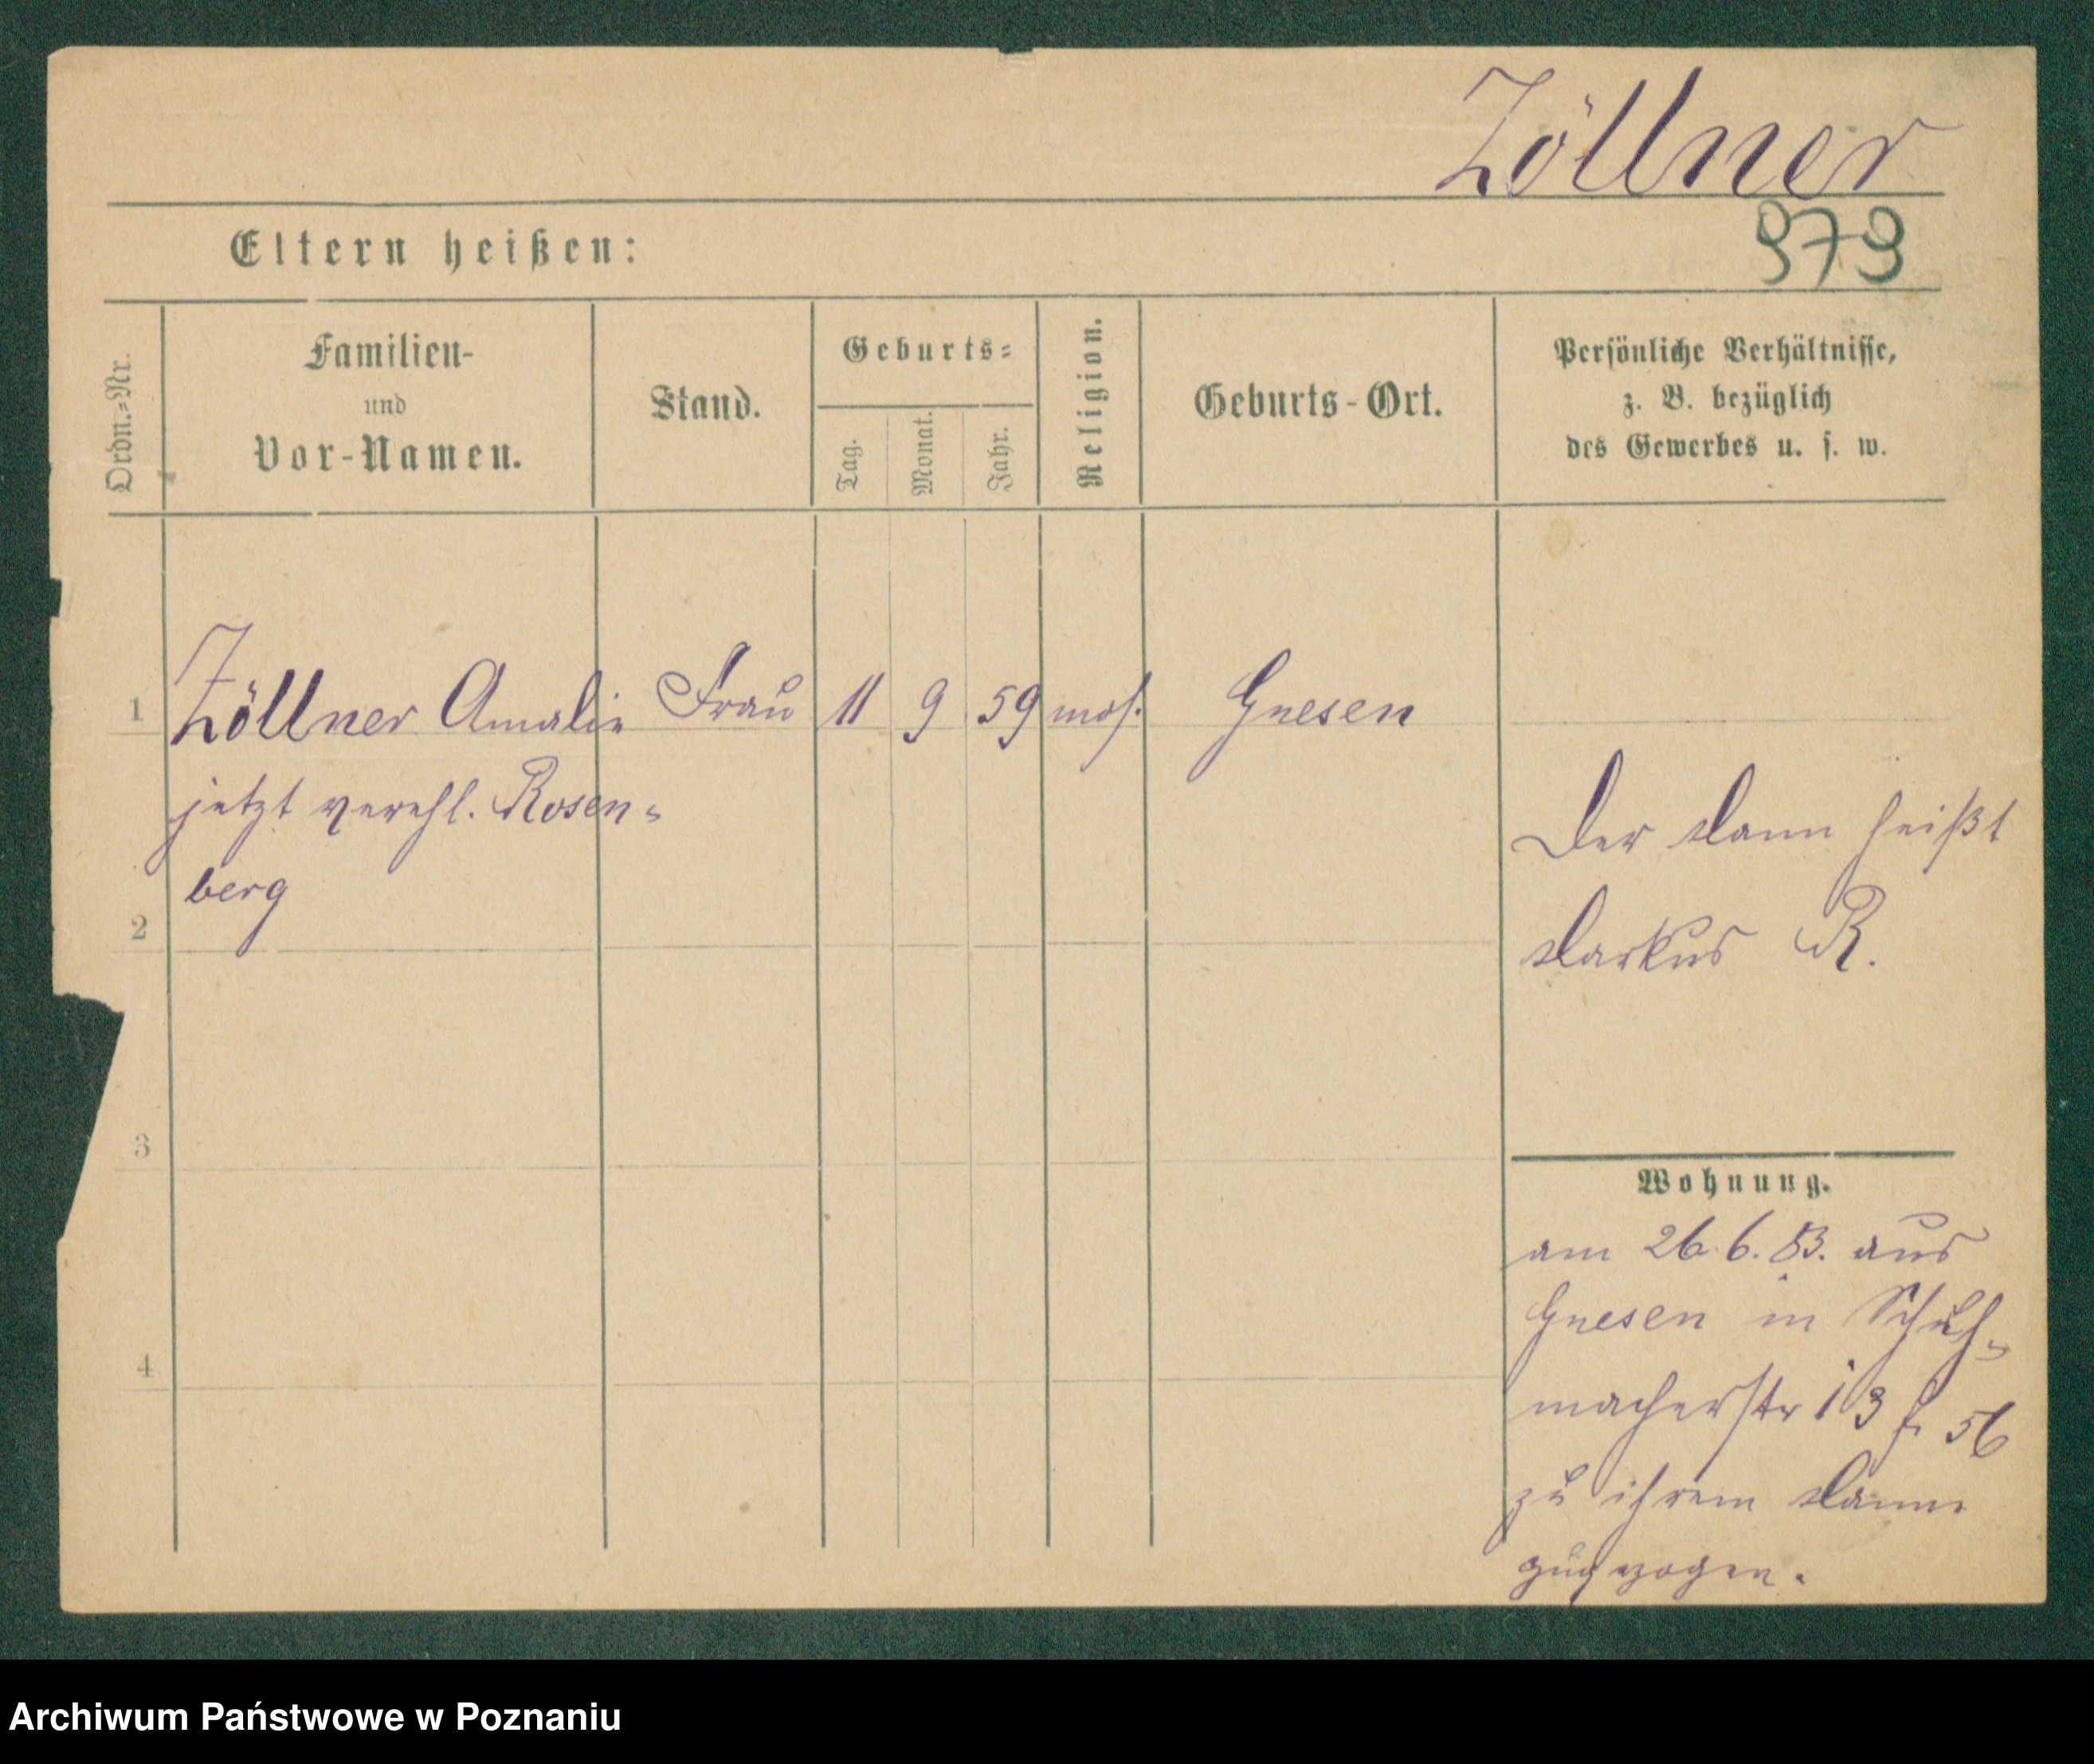 Zöllner
979
Eltern heißen:
Ordn.=Nr.
Familien-
und
Vor-Namen.
Stand.
Geburts=
Tag.
Monat.
Jahr.
Religion.
Geburts-Ort.
Persönliche Verhältnisse,
z. B. bezüglich
des Gewerbes u. s. w.
1 Zöllner Amalie Frau 11 9 59 mos. Gnesen
jetzt verehl. Rosen=
berg
2
Der Mann heißt
Markus R.
3
4
Wohnung.
am 26.6.83. aus
Gnesen in Schuh=
macherstr 13 f. 56
zu ihrem Manne
zugezogen.
Archiwum Państwowe w Poznaniu